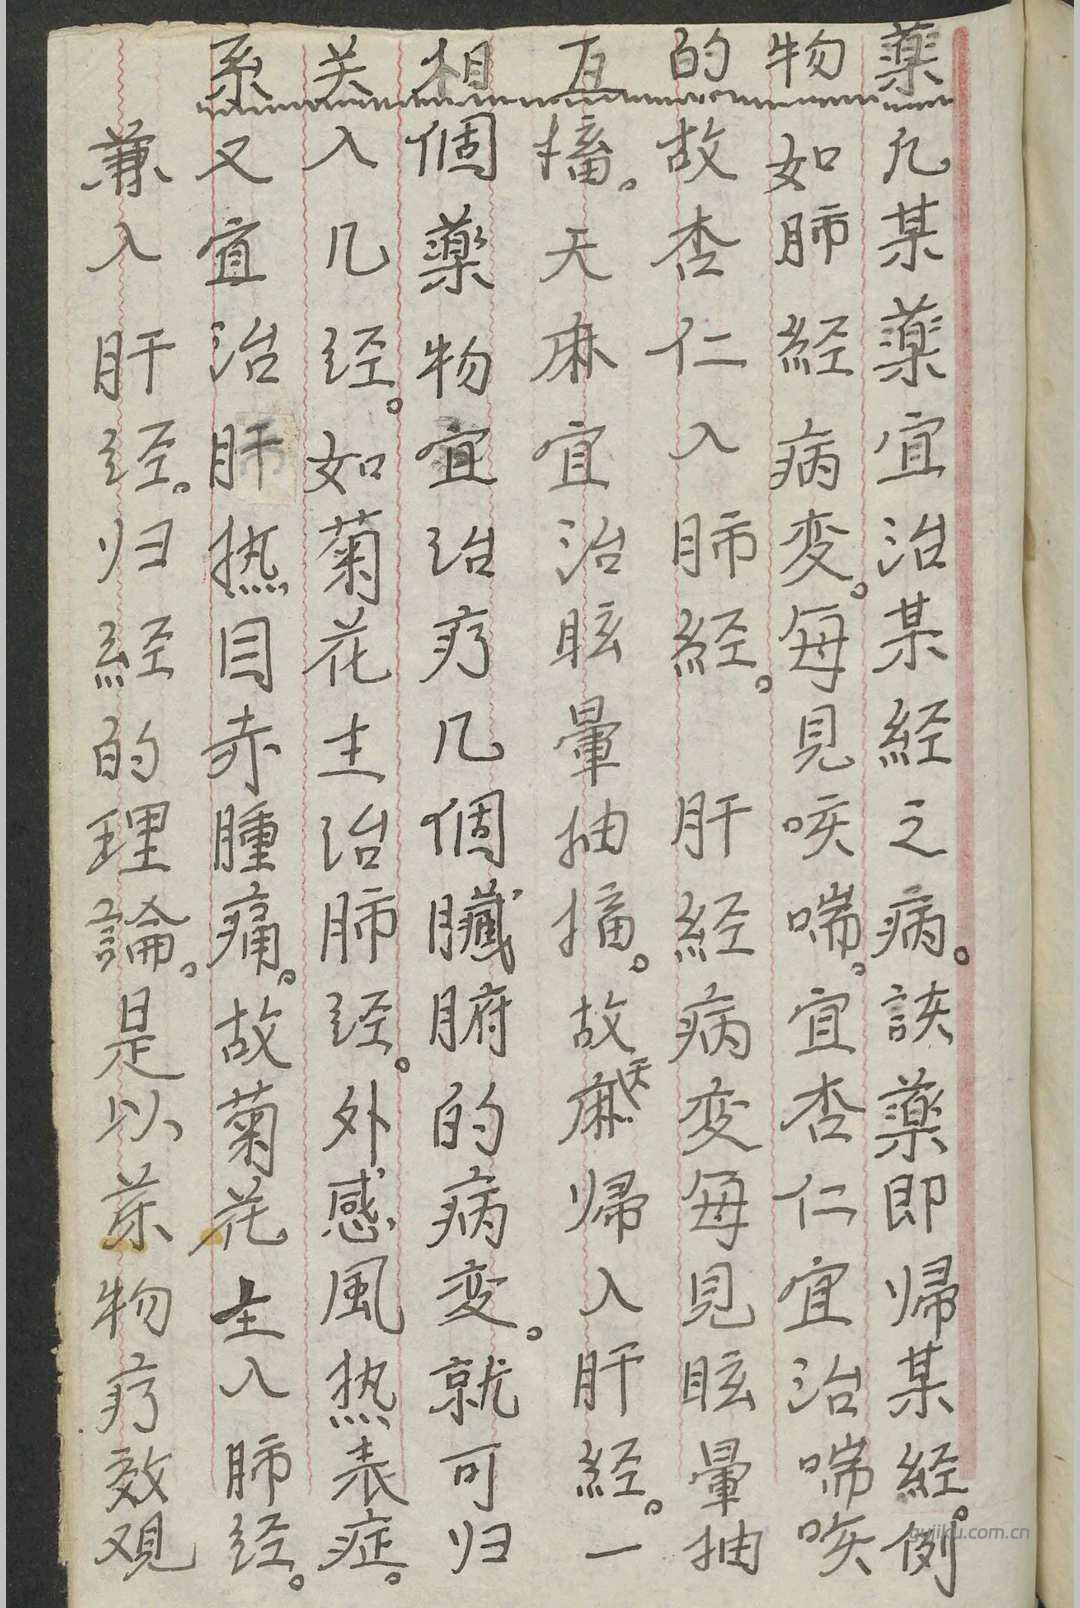 藥物的互相关系
凡某藥宜治某經之病。該藥即歸某經。例
如肺經病变。每見咳喘。宜杏仁宜治喘咳
故杏仁入肺經。 肝經病变每見眩暈抽
搐。天麻宜治眩暈抽搐。故天麻歸入肝經。一
個藥物宜治疗几個臟腑的病变。就可归
入几经。如菊花主治肺经。外感風热表症。
又宜治肝热目赤腫痛。故菊花主入肺经。
兼入肝经。归經的理論。是以药物疗效观
gujiku.com.cn